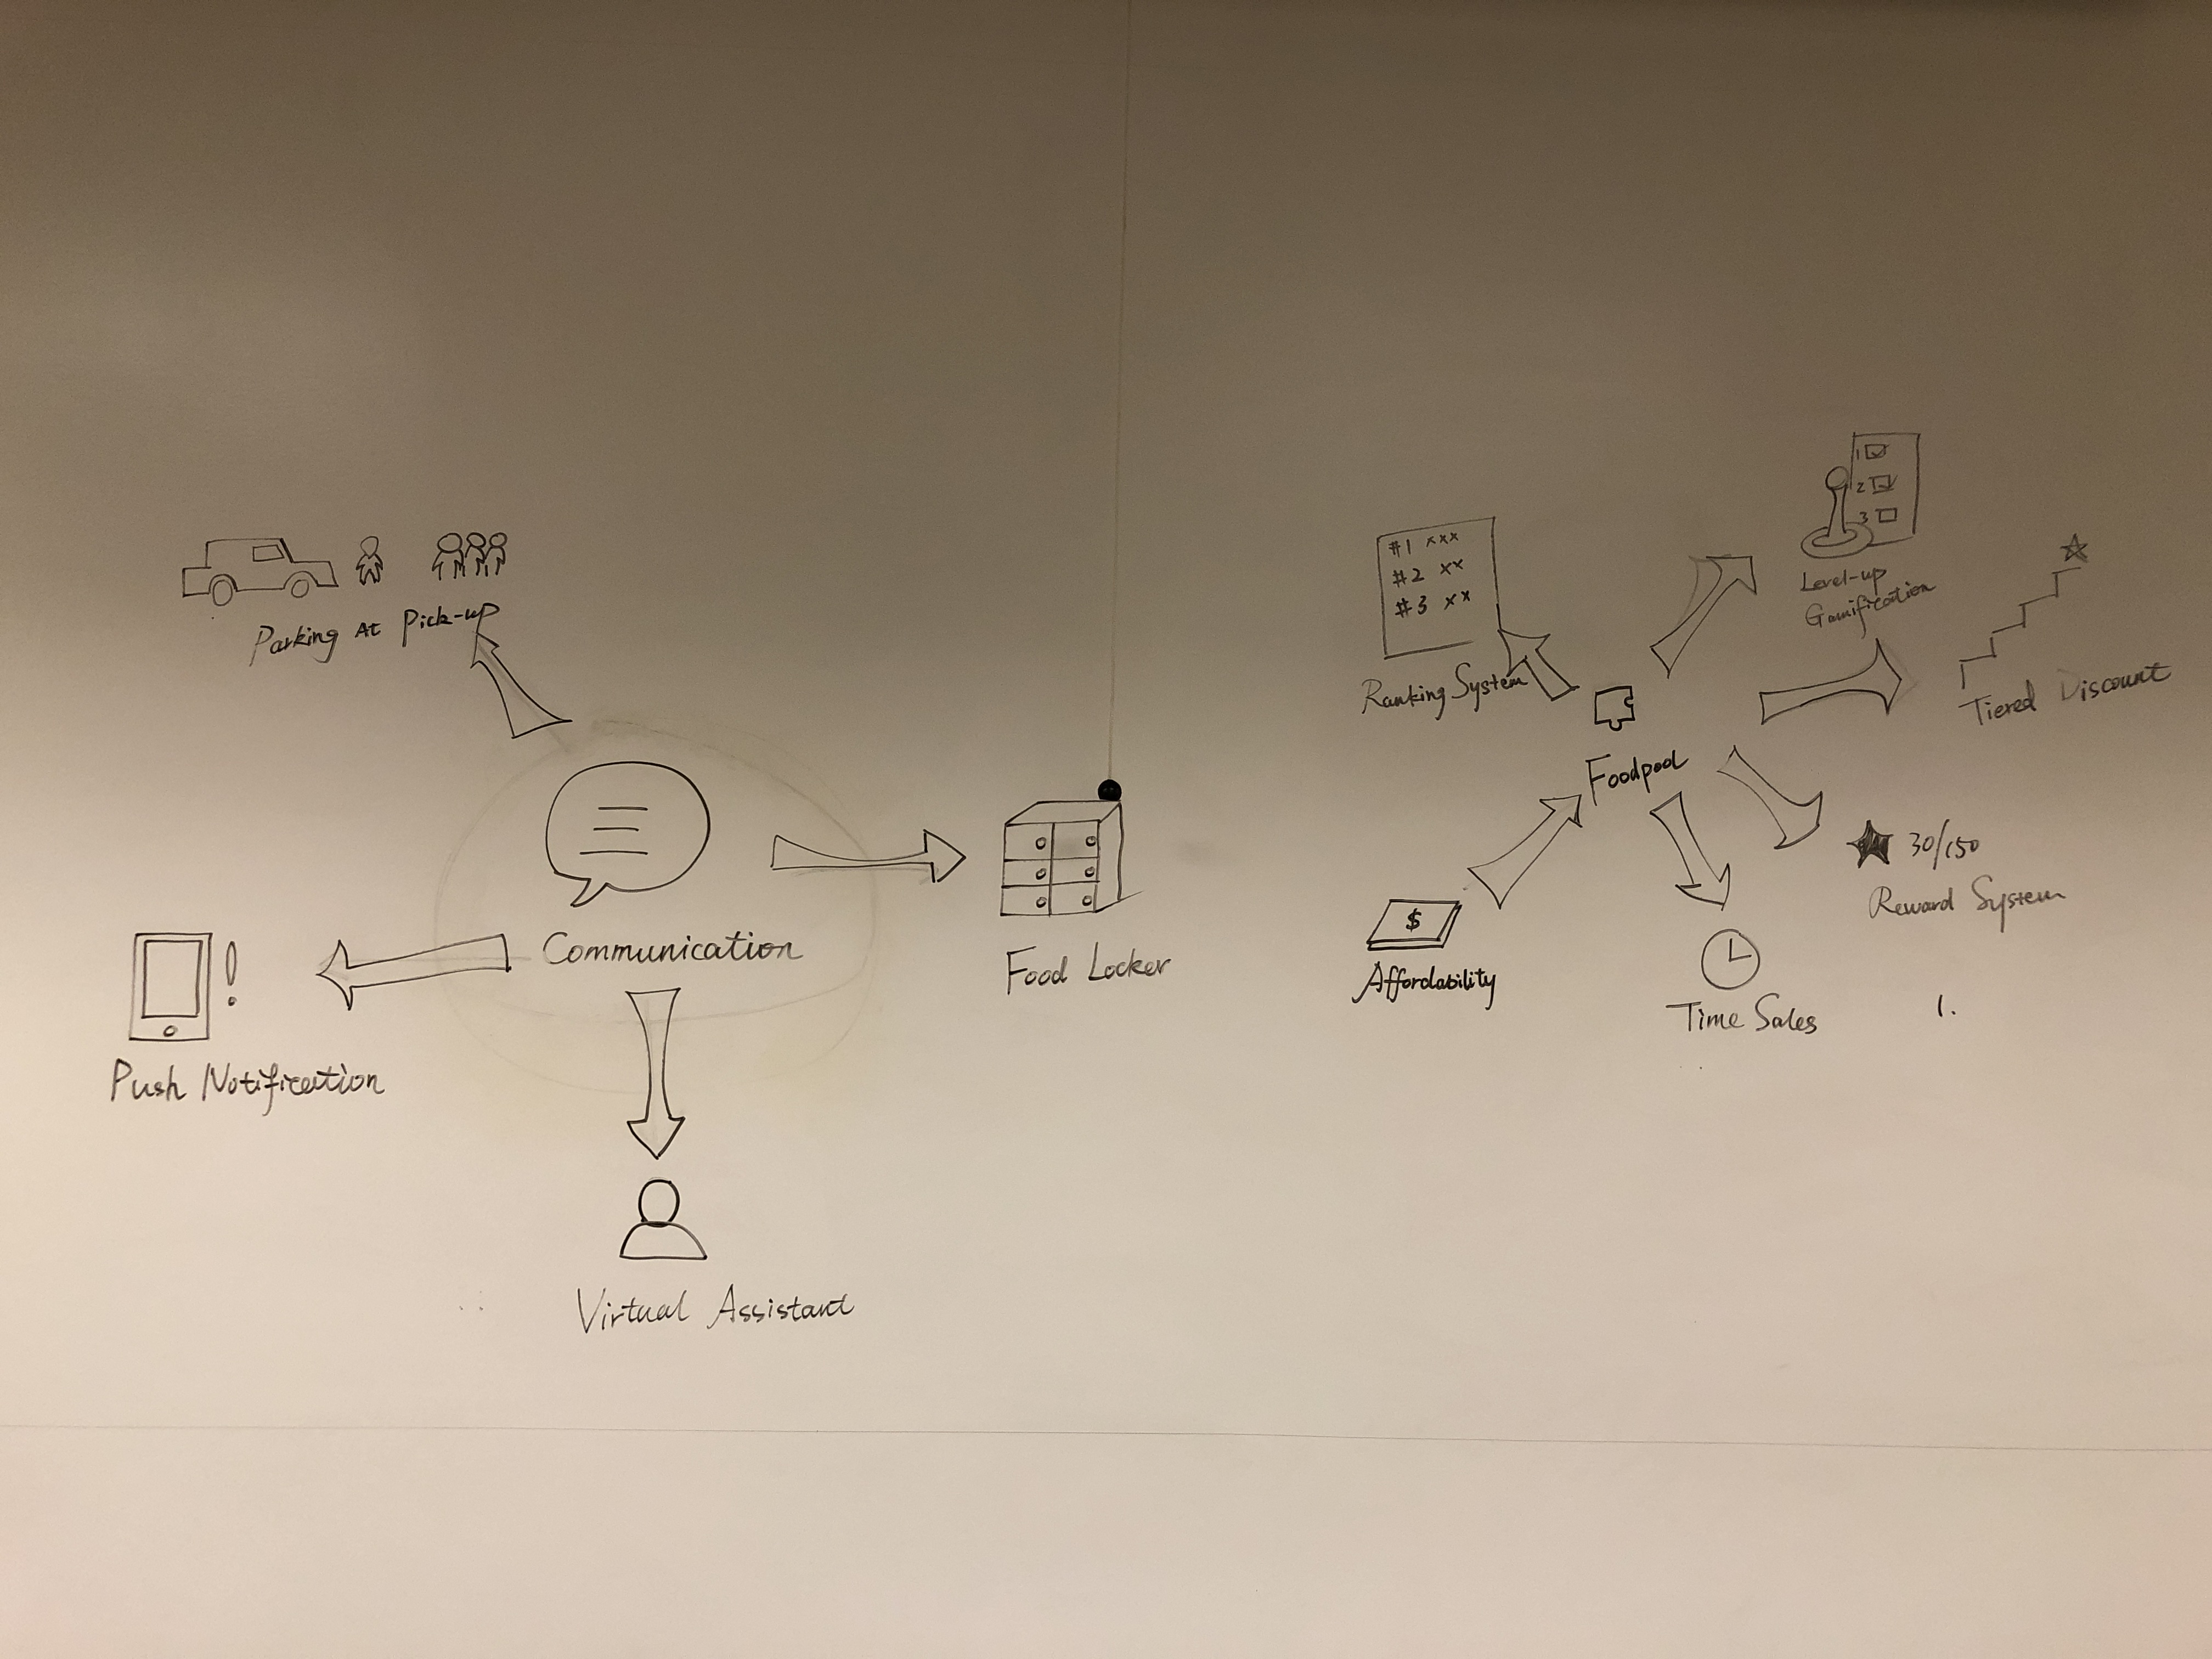 Parking At Pick-up
Communication
Push Notification
Food Locker
Virtual Assistant
#1 xxx
#2 xx
#3 xx
Ranking System
1
2
3
Level-up
Gamification
Tiered Discount
Foodpool
30/150
Reward System
$
Affordability
Time Sales
1.